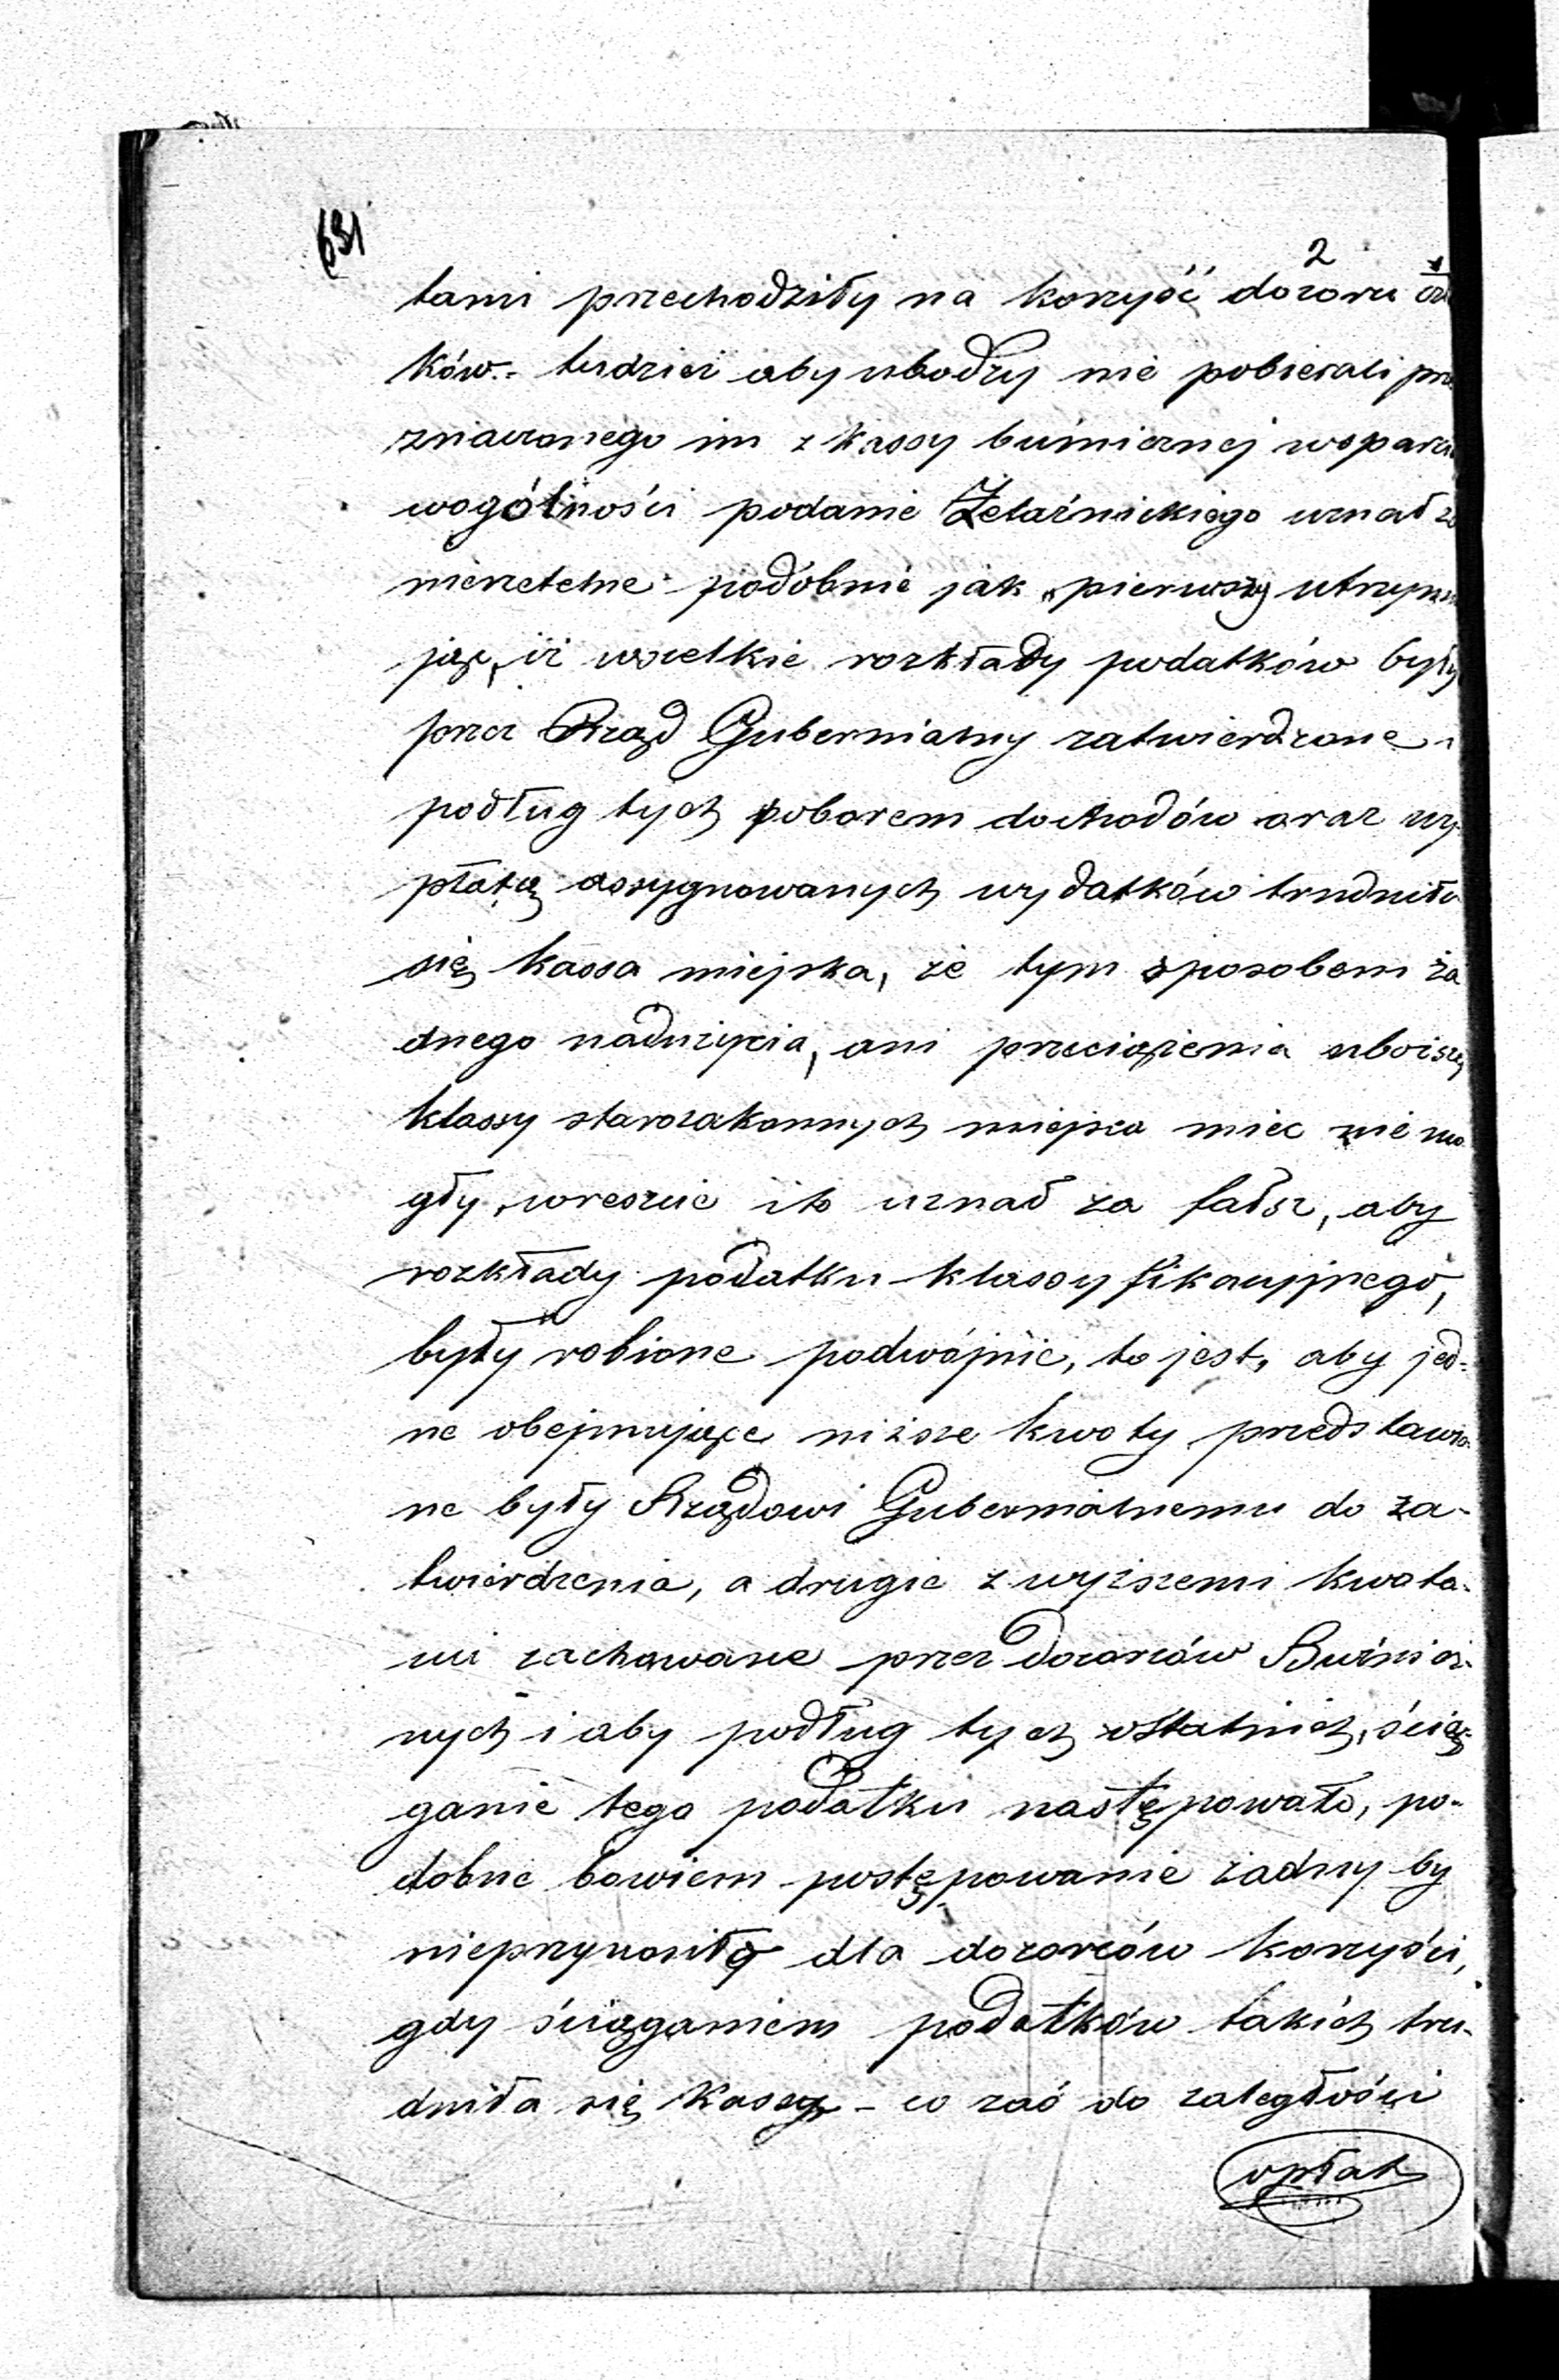 631
2
tami przechodziły na korzyść dozoru
ków.- tudzież aby ubodzy nie pobierali prze
znaczonego im z kassy buźnicznej wsparcia
wogólności podanie Żelaźnickiego uznał za
nierzetelne podobnie jak pierwszy utrzymu
jąc, iż wszelkie rozkłady podatków były
przez Rząd Gubernialny zatwierdzone i
podług tych poborem dochodów oraz wy-
płatą assygnowanych wydatków trudniła
się kassa miejska, że tym sposobem ża
dnego nadużycia, ani przeciążenia uboiszej
klassy starozakonnych miejsca mieć nie mo
gły, wreszcie i to uznał za fałsz, aby
rozkłady podatku klassyfikacyjnego,
były robione podwójnie, to jest, aby jed-
ne obejmujące niższe kwoty przedstawio-
ne były Rządowi Gubernialnemu do za-
twierdzenia, a drugie z wyższemi kwota-
mi zachowane przez dozorców Buźnicz-
nych i aby podług tych ostatnich, ścią-
ganie tego podatku następowało, po-
dobne bowiem postępowanie żadny by
nieprzynosiło dla dozorców korzyści,
gdy ściąganiem podatków takich tru-
dniła się Kassa - co zaś do zaległości
opłat